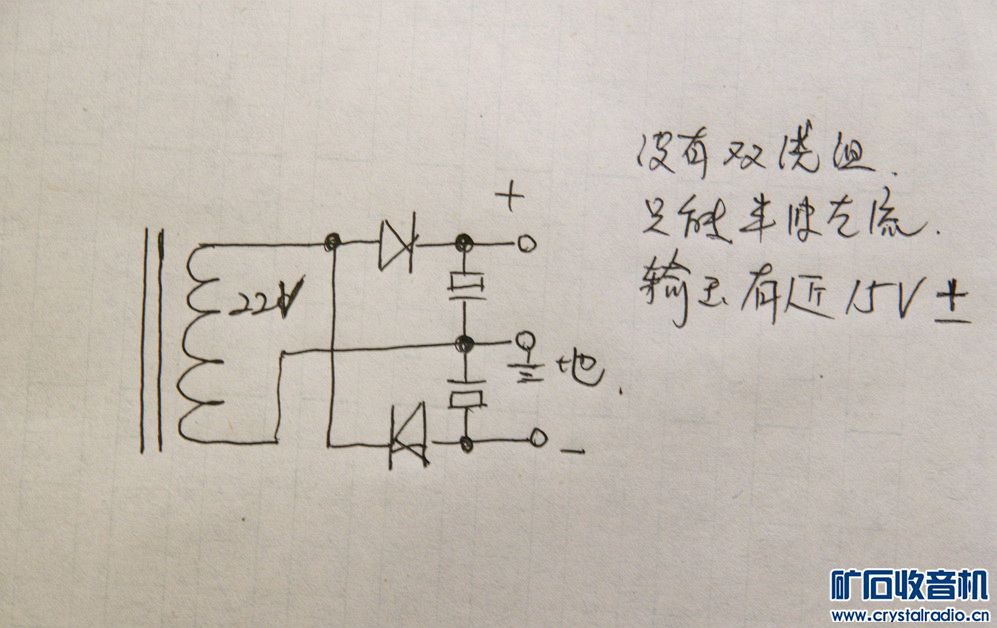 没有双绕组.
只能半波右流.
输出有近15V ±
+
22V
地.
-
矿石收音机
www.crystalradio.cn